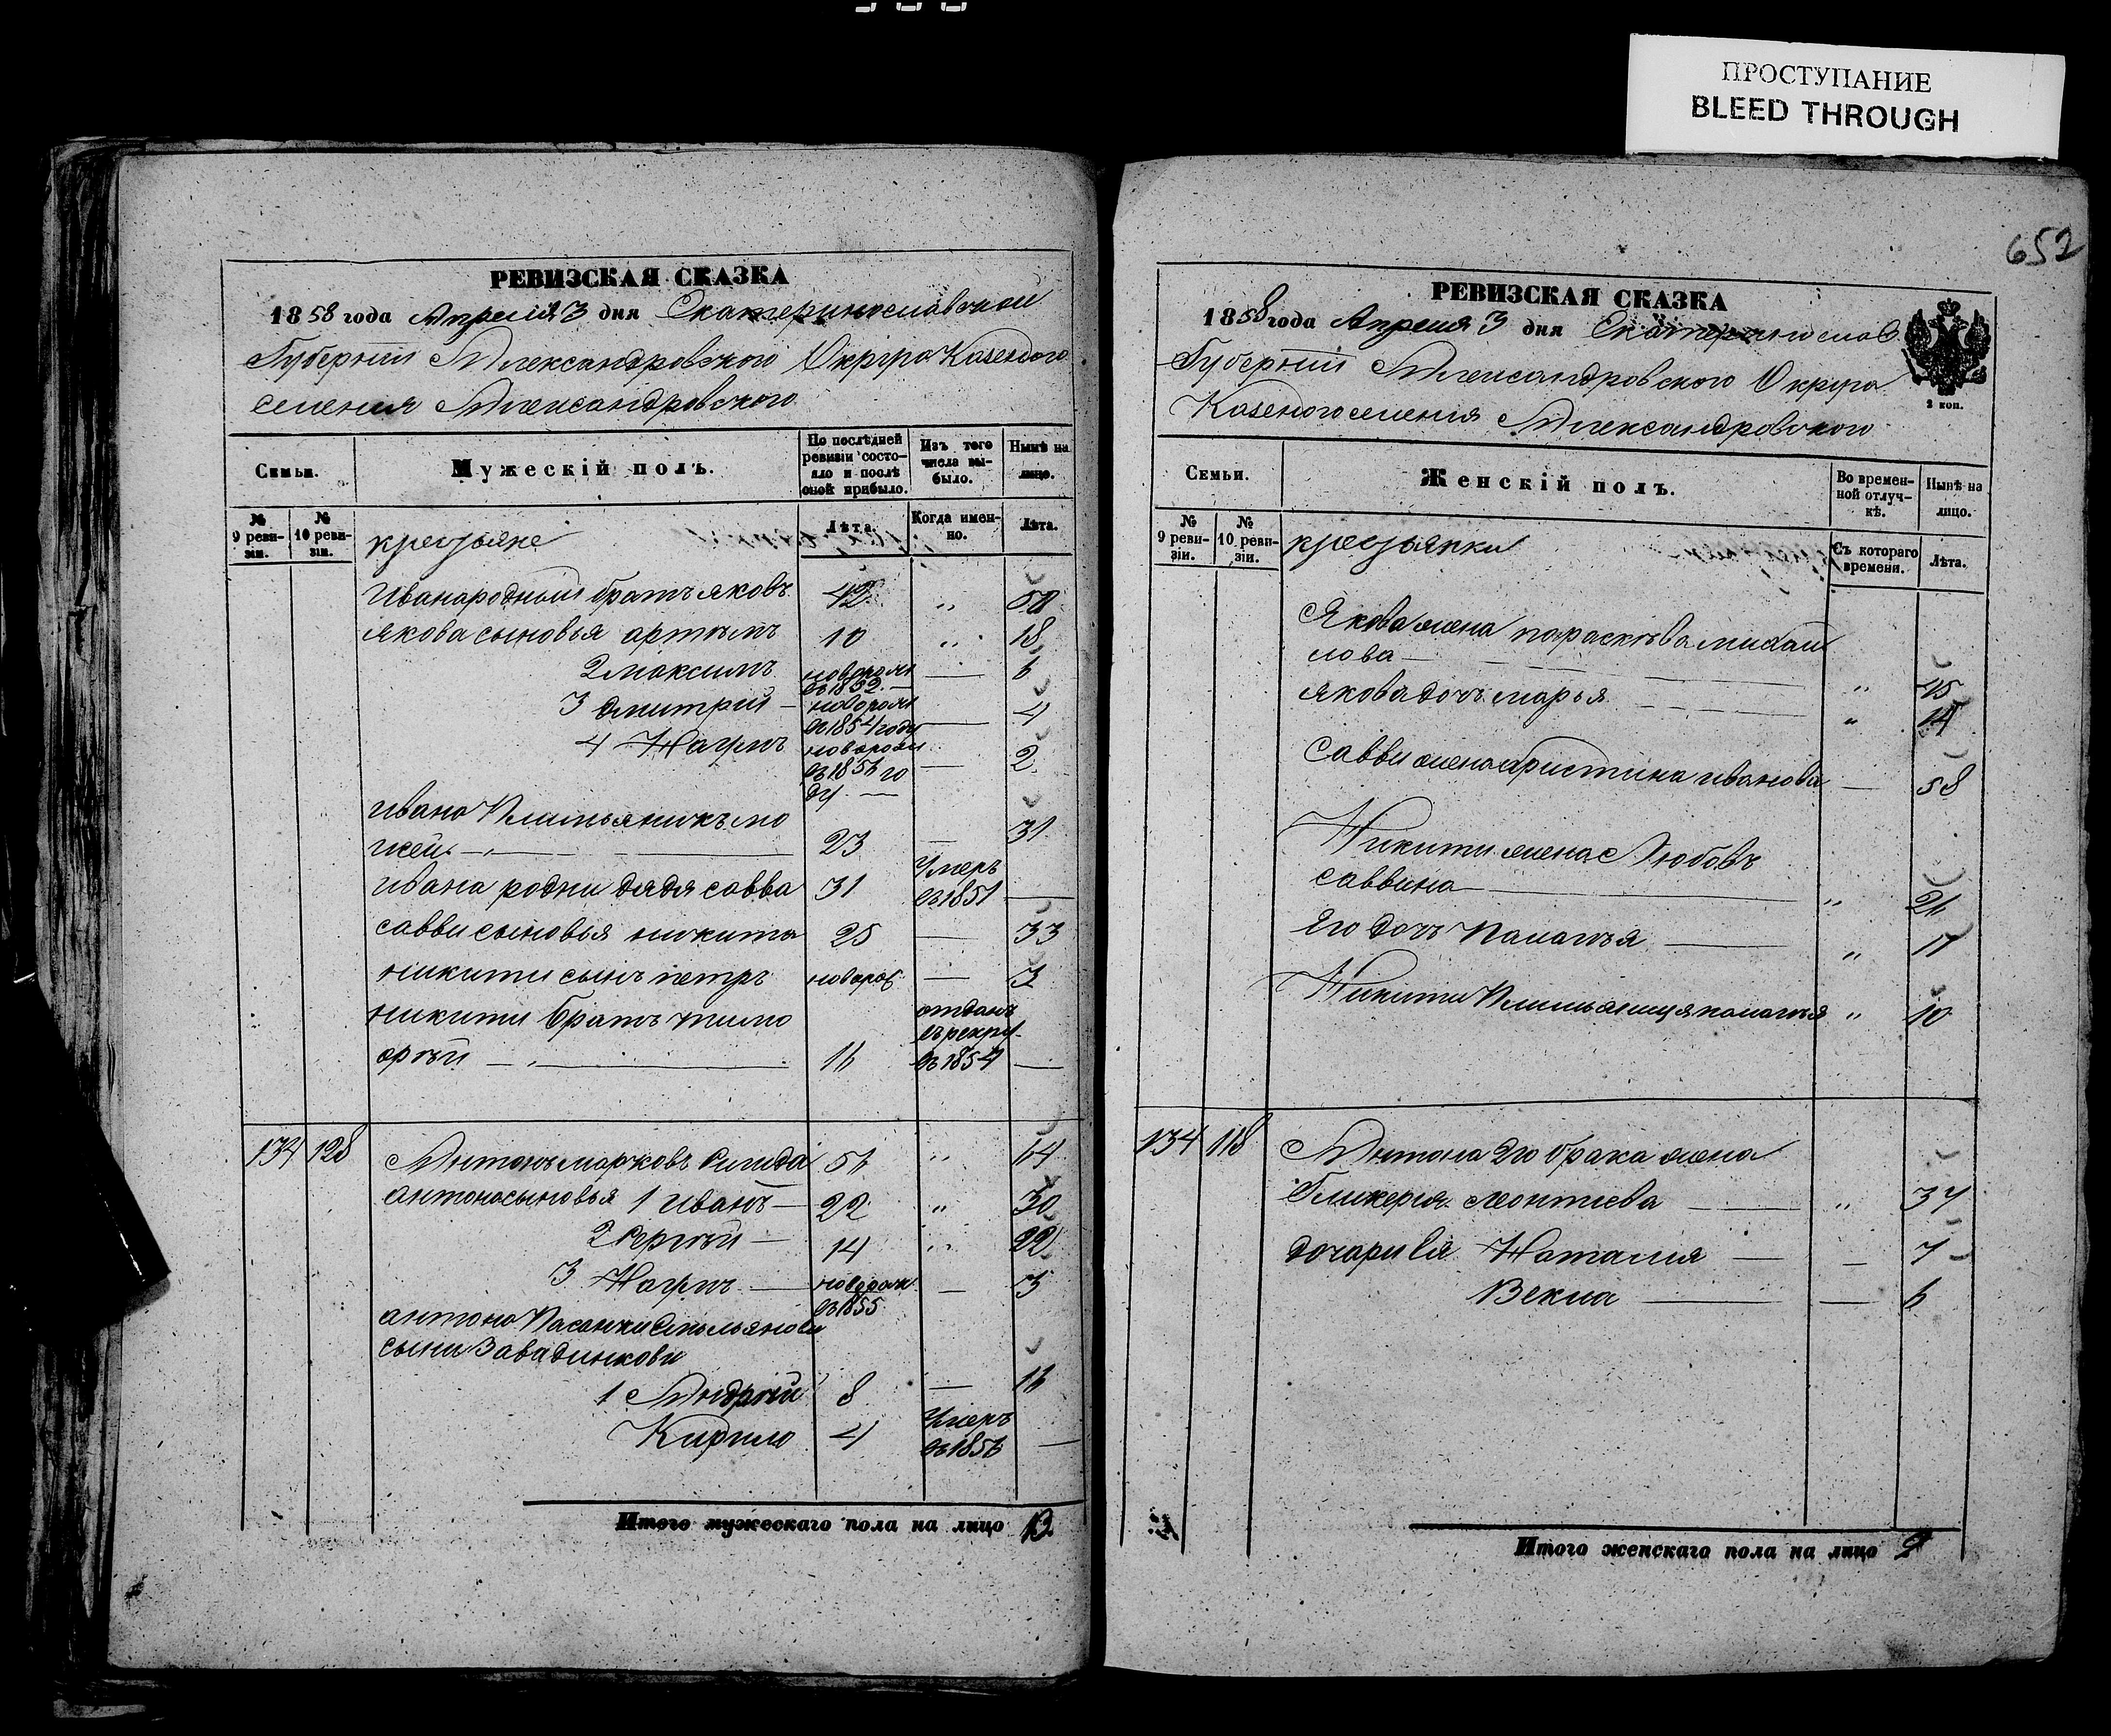 ПРОСТУПАНИЕ
BLEED THROUGH
652
РЕВИЗСКАЯ СКАЗКА
1858 года Апреля 3 дня Екатеринославской
Губернии Александровского Округа Казеного
селения Александровского
Семьи.
Мужескій полъ.
По послѣдней ревизіи состояло и послѣ оной прибыло.
Изъ того числа выбыло.
Нынѣ на лицо.
№ 9 ревизіи.
№ 10 ревизіи.
крестьяне
Лѣта.
Когда именно.
Лѣта.
Ивана родный братъ яковъ 42 „ 50
якова сыновья артемъ 10 „ 18
2 максимъ новорож въ 1852 — 6
3 дмитрий — новорож въ 1854 году — 4
4 Наумъ новорож въ 1856 году — 2
Ивана Племьяникъ мо
исей — 23 — 31
ивана родни дядя савва 31 Умеръ въ 1851 —
савви сыновья никита 25 — 33
никити сынъ петръ новорож — 3
никити братъ тимо
фѣй — 16 отданъ въ рекру въ 1854 —
134 128 Антонъ марковъ 56 „ 64
антона сыновья 1 иванъ — 22 „ 30
2 Сергѣй — 14 „ 22
3 Наумъ — новорож въ 1855 — 3
антона Пасинки
сыни
1 Андрѣй 8 — 16
Кирило 4 Умеръ въ 1856 —
Итого мужескаго пола на лицо 13
РЕВИЗСКАЯ СКАЗКА
1858 года Апреля 3 дня Екатеринослав
Губернии Александровского Округа
Казеного селения Александровского
2 коп.
Семьи.
Женскій полъ.
Во временной отлучкѣ.
Нынѣ на лицо.
№ 9 ревизіи.
№ 10 ревизіи.
крестьянки
Съ котораго времени.
Лѣта.
Якова жена параскѣва михаи
лова — „ 45
якова дочь марья „ 14
Савви жена христина иванова — 58
Никити жена Любовъ
саввина — „ 26
Его дочь Палажья — „ 17
Никити Племьяница палажъя „ 10
134 118 Антона 2го брака жена
Гликерия леонтиева — „ 37
дочари Ея Наталия — — 7
Векла — — 6
Итого женскаго пола на лицо 9